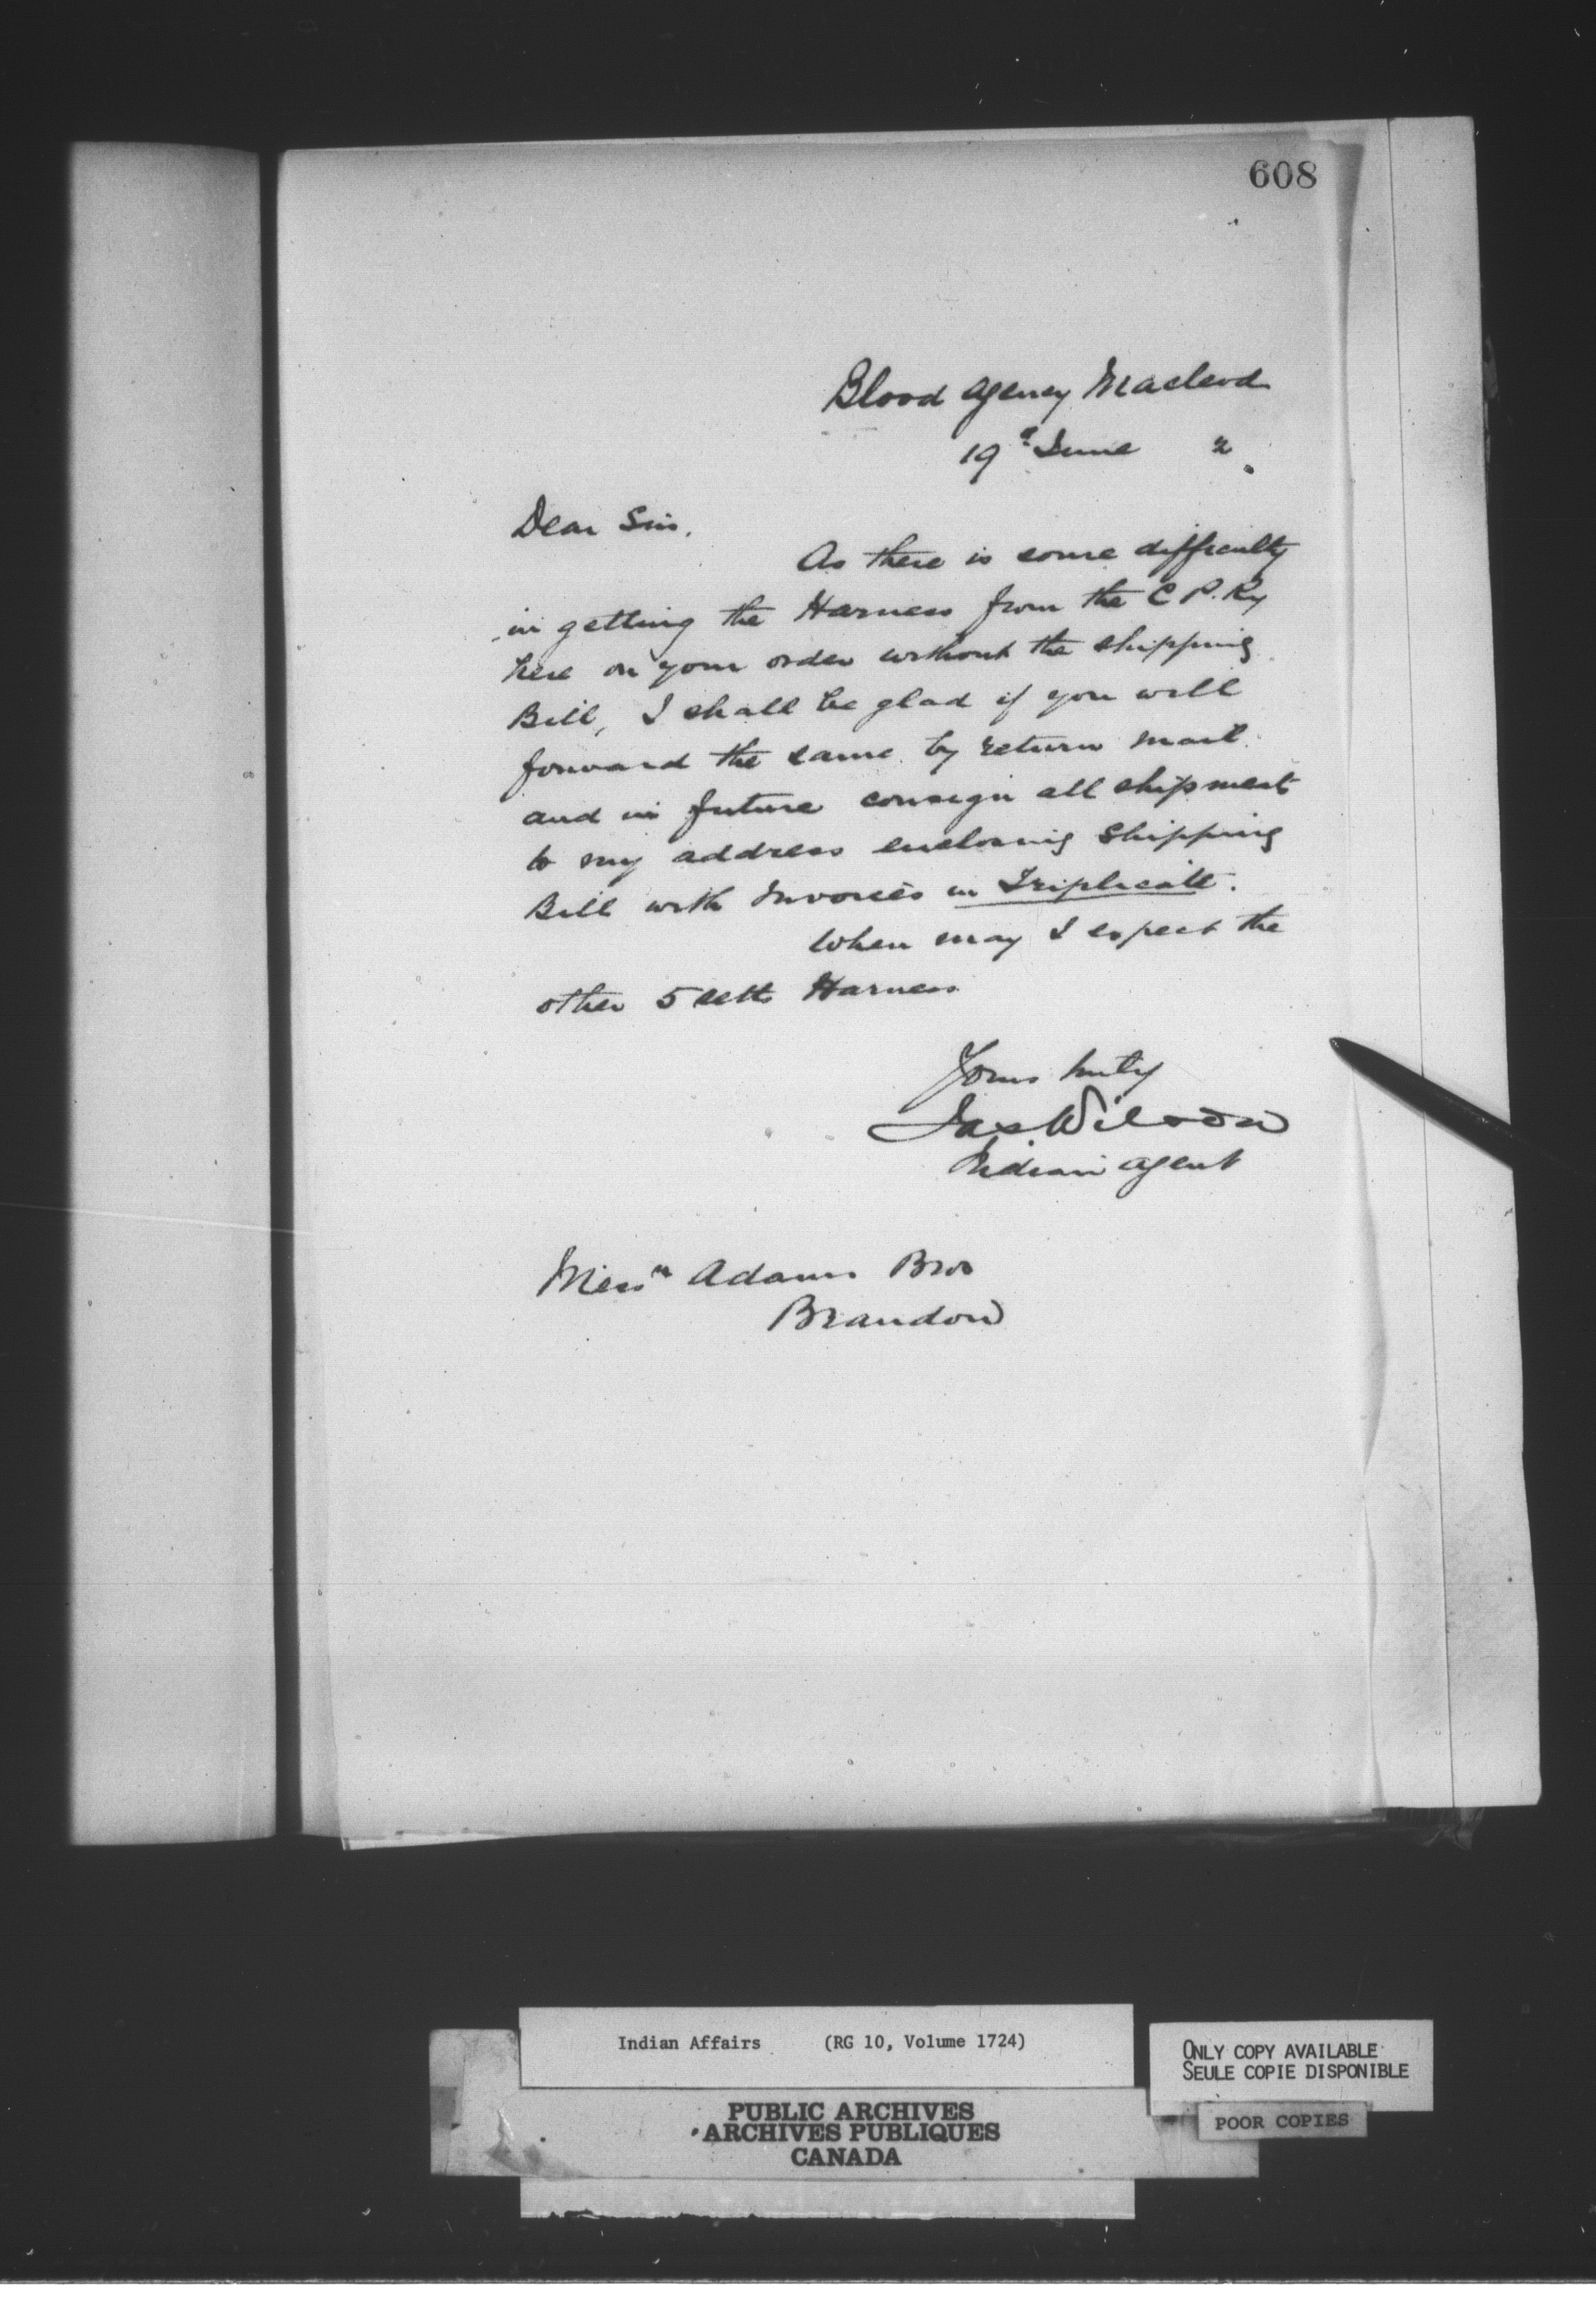 608
Blood Agency Macleod
19th June 2
Dear Sirs,
As there is some difficulty
in getting the Harness from the C P. Ry
here on your order without the shipping
Bill, I shall be glad if you will
forward the same by return mail
and in future consign all shipments
to my address enclosing Shipping
Bill with Invoices in Triplicate.
When may I expect the
other 5 setts Harness
Yours truly
Jas Wilson
Indian Agent
Messrs Adams Bros
Brandon
Indian Affairs (RG 10, Volume 1724)
PUBLIC ARCHIVES
ARCHIVES PUBLIQUES
CANADA
ONLY COPY AVAILABLE
SEULE COPIE DISPONIBLE
POOR COPIES